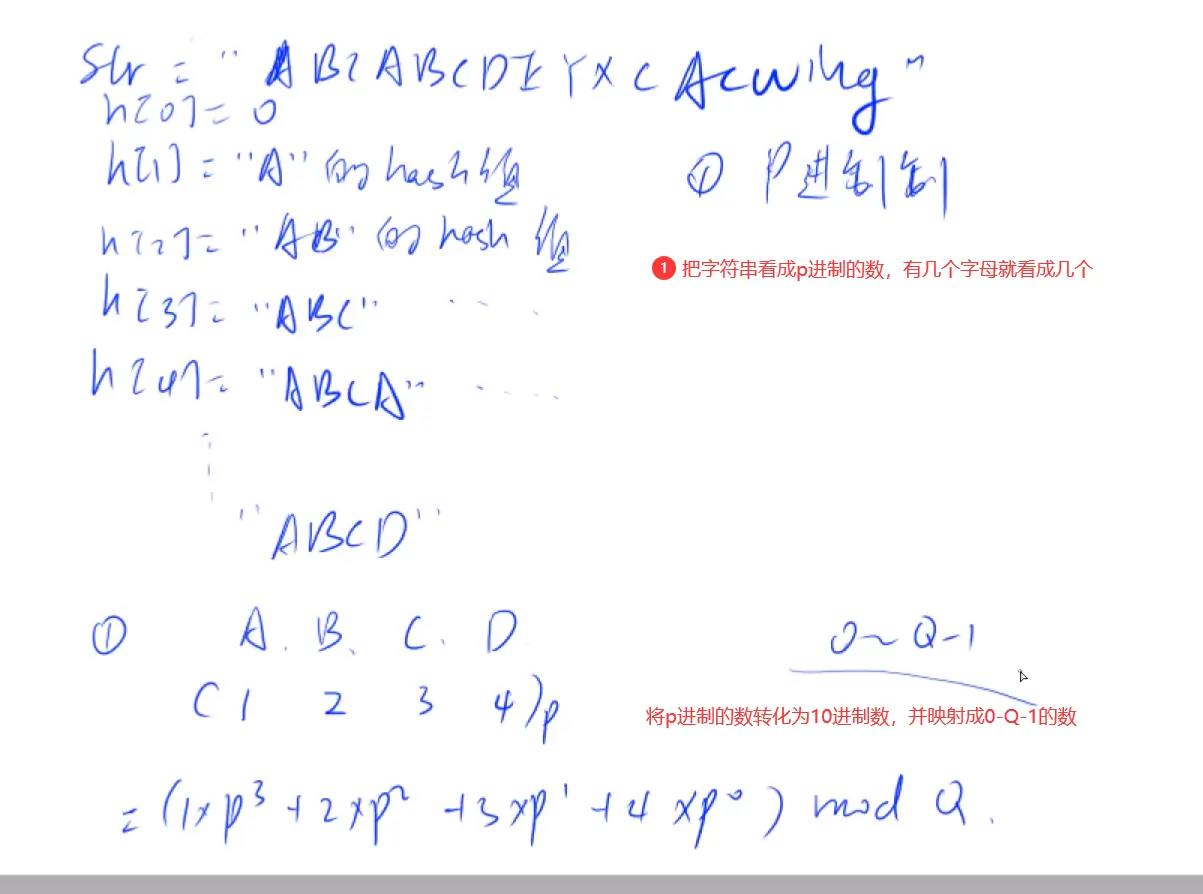 Str = "ABCABCDEYXCAcwing"
h[0] = 0
h[1] = "A" 的 hash 值
① P进制
h[2] = "AB" 的 hash 值
1 把字符串看成p进制的数，有几个字母就看成几个
h[3] = "ABC" ....
h[4] = "ABCA" ....
"ABCD"
① A. B. C. D
0~Q-1
(1 2 3 4)p
将p进制的数转化为10进制数，并映射成0-Q-1的数
= (1×p³ + 2×p² + 3×p¹ + 4×p⁰) mod Q.